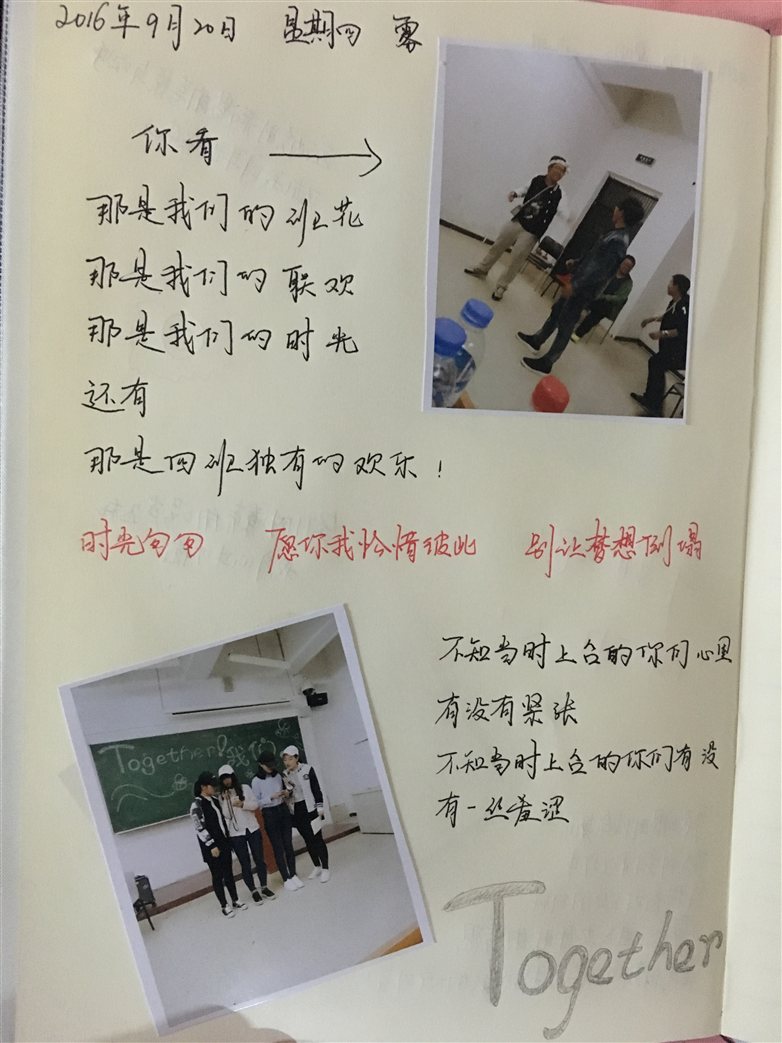 2016年9月20日 星期四 雾
你看
那是我们的班花
那是我们的联欢
那是我们的时光
还有
那是四班独有的欢乐!
时光匆匆 愿你我怜惜彼此 别让梦想倒塌
不知当时上台的你们心里
有没有紧张
不知当时上台的你们有没
有一丝羞涩
Together! 我们
Together